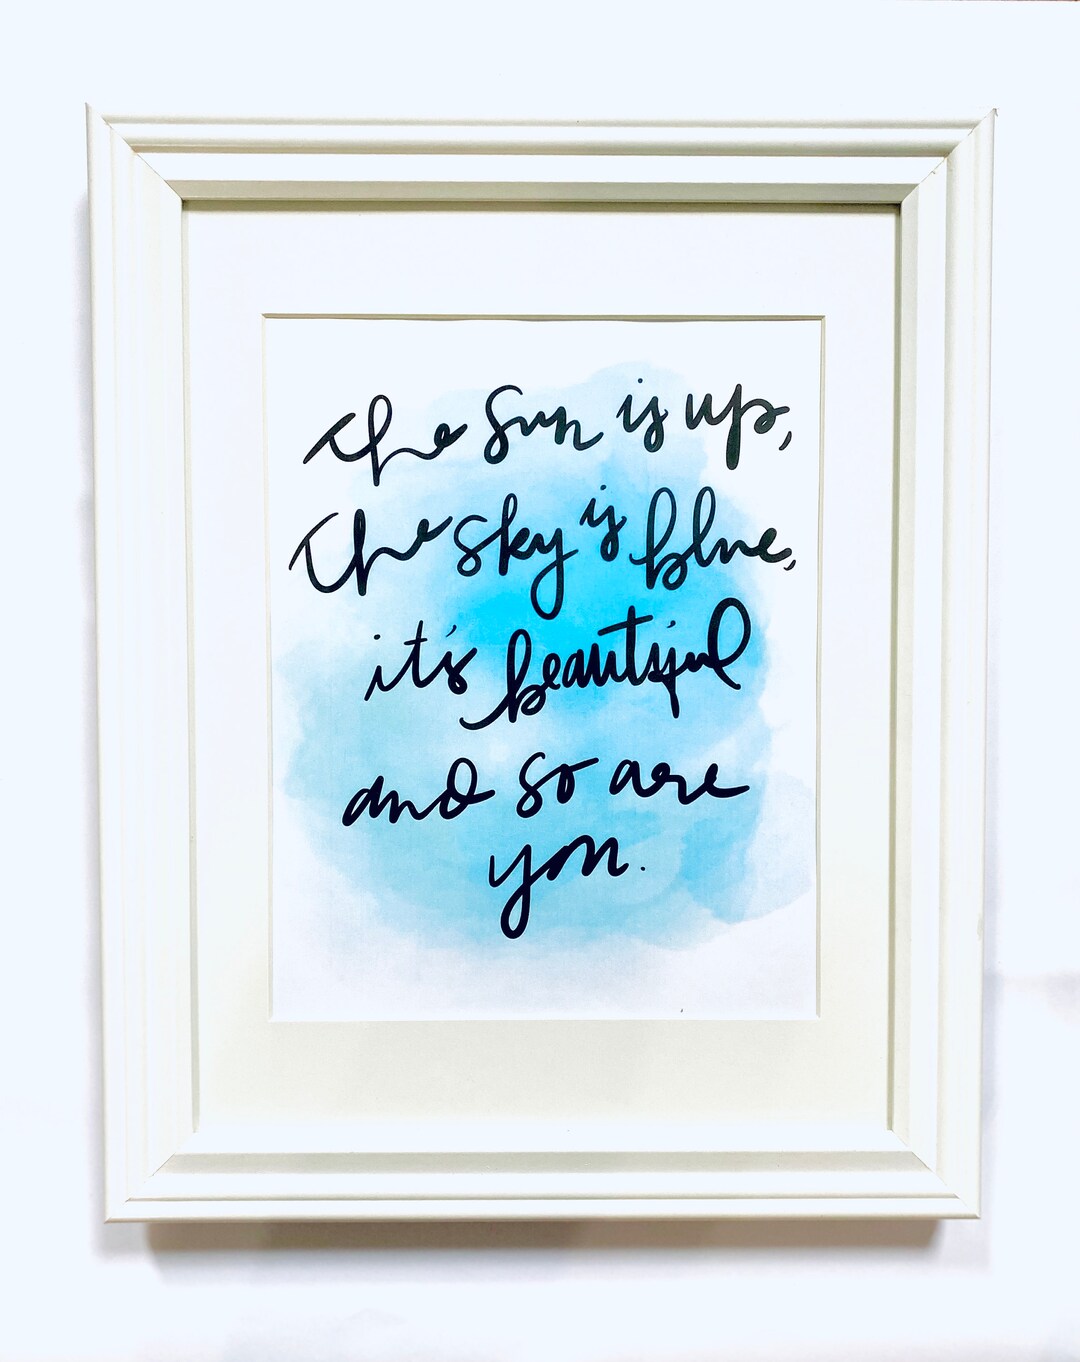 The sun is up,
The sky is blue,
it's beautiful
and so are
you.